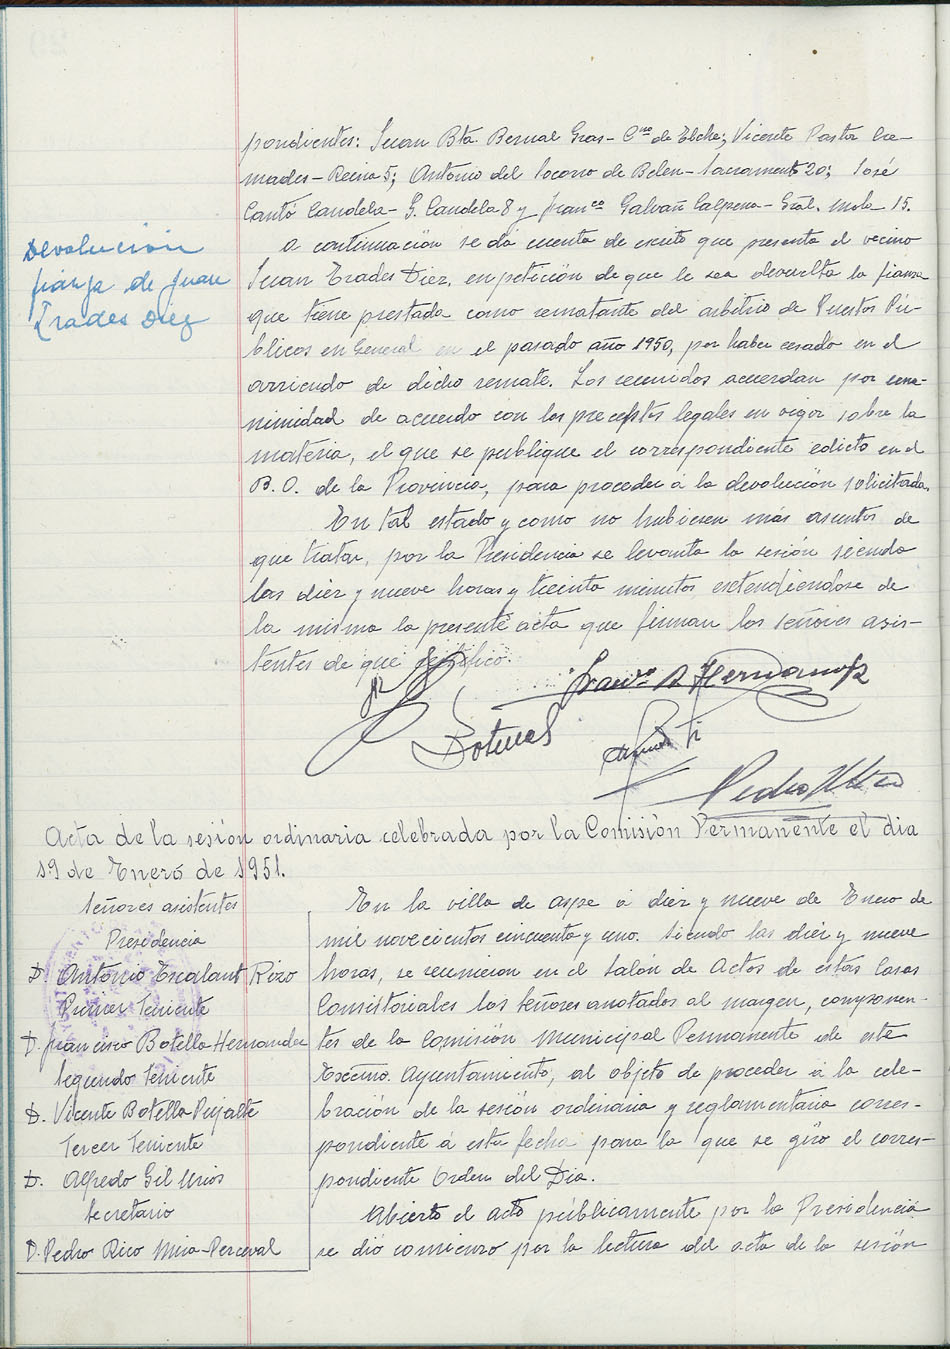 pondientes: Juan Bta. Bernal Gras- Cno de Elche; Vicente Pastor Cre-
mades- Reina 5; Antonio del Socorro de Belen- Sacramento 20; José
Cantó Candela- G. Candela 8 y Franco Galvañ Calpena- Gral. Mola 15.
Devolución
fianza de Juan
Erades Diez
a continuación se dá cuenta de escrito que presenta el vecino
Juan Erades Diez, en petición de que le sea devuelta la fianza
que tiene prestada como rematante del arbitrio de Puestos Pú-
blicos en General en el pasado año 1950, por haber cesado en el
arriendo de dicho remate. Los reunidos acuerdan por una-
nimidad de acuerdo con los preceptos legales en vigor sobre la
materia, el que se publique el correspondiente edicto en el
B. O. de la Provincia, para proceder á la devolución solicitada.
En tal estado y como no hubiesen más asuntos de
que tratar, por la Presidencia se levanta la sesión siendo
las diez y nueve horas y treinta minutos extendiendose de
la misma la presente acta que firman los señores asis-
tentes de que certifico.
Franco B Hernandez
Botella
Pedro Rico
Acta de la sesión ordinaria celebrada por la Comisión Permanente el dia
19 de Enero de 1951.
Señores asistentes
Presidencia
D. Antonio Escalant Rizo
Primer Teniente
D. Francisco Botella Hernandez
Segundo Teniente
D. Vicente Botella Pujalte
Tercer Teniente
D. Alfredo Gil Urios
Secretario
D. Pedro Rico Mira-Perceval
En la villa de Aspe á diez y nueve de Enero de
mil novecientos cincuenta y uno. Siendo las diez y nueve
horas, se reunieron en el Salón de Actos de estas Casas
Consistoriales los señores anotados al margen, componen-
tes de la Comisión Municipal Permanente de este
Excmo. Ayuntamiento, al objeto de proceder á la cele-
bración de la sesión ordinaria y reglamentaria corres-
pondiente á esta fecha para la que se giró el corres-
pondiente Orden del Dia.
Abierto el acto públicamente por la Presidencia
se dió comienzo por la lectura del acta de la sesión